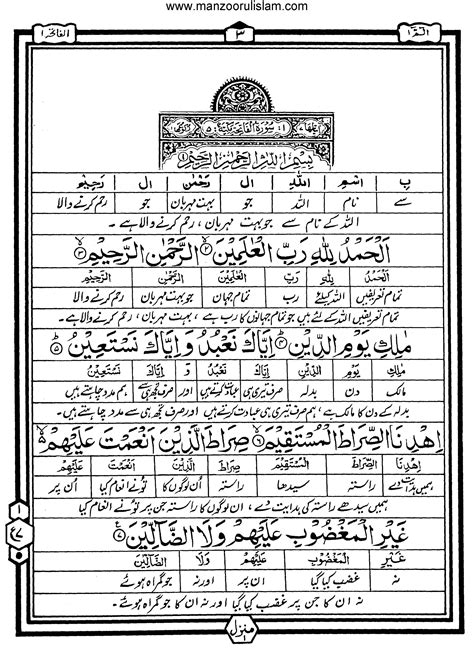 www.manzoorulislam.com
الفاتحة ١ ٣ الٓمّٓ ١
سُوْرَةُ الْفَاتِحَةِ
بِسْمِ اللّٰهِ الرَّحْمٰنِ الرَّحِيْمِ
بِ اِسْمِ اللّٰهِ ال رَحْمٰنِ ال رَحِيْمِ
سے نام اللہ جو بہت مہربان جو رحم کرنے والا
اللہ کے نام سے جو بہت مہربان ، رحم کرنے والا ہے ۔
اَلْحَمْدُ لِلّٰهِ رَبِّ الْعٰلَمِيْنَ ۙ﴿۲﴾ الرَّحْمٰنِ الرَّحِيْمِ ۙ﴿۳﴾
اَلْحَمْدُ لِلّٰهِ رَبِّ الْعٰلَمِيْنَ الرَّحْمٰنِ الرَّحِيْمِ
تمام تعریفیں اللہ کیلئے رب تمام جہان جو بہت مہربان رحم کرنے والا
تمام تعریفیں اللہ کے لئے ہیں جو تمام جہانوں کا رب ہے ، بہت مہربان ، رحم کرنے والا ہے ۔
مٰلِكِ يَوْمِ الدِّيْنِ ۙ﴿۴﴾ اِيَّاكَ نَعْبُدُ وَ اِيَّاكَ نَسْتَعِيْنُ ۙ﴿۵﴾
مٰلِكِ يَوْمِ الدِّيْنِ اِيَّاكَ نَعْبُدُ وَ اِيَّاكَ نَسْتَعِيْنُ
مالک دن بدلہ صرف تیری ہی عبادت کرتے ہیں اور صرف تجھ ہی سے ہم مدد چاہتے ہیں
بدلہ کے دن کا مالک ہے ہم صرف تیری ہی عبادت کرتے ہیں اور صرف تجھ ہی سے مدد چاہتے ہیں ۔
اِهْدِنَا الصِّرَاطَ الْمُسْتَقِيْمَ ۙ﴿۶﴾ صِرَاطَ الَّذِيْنَ اَنْعَمْتَ عَلَيْهِمْ
اِهْدِنَا الصِّرَاطَ الْمُسْتَقِيْمَ صِرَاطَ الَّذِيْنَ اَنْعَمْتَ عَلَيْهِمْ
ہمیں ہدایت دے راستہ سیدھا راستہ ان لوگوں کا تونے انعام کیا اُن پر
ہمیں سیدھے راستہ کی ہدایت دے ، ان لوگوں کا راستہ جن پر تونے انعام کیا
غَيْرِ الْمَغْضُوْبِ عَلَيْهِمْ وَلَا الضَّآلِّيْنَ ﴿۷﴾
غَيْرِ الْمَغْضُوْبِ عَلَيْهِمْ وَلَا الضَّآلِّيْنَ
نہ غضب کیا گیا ان پر اور نہ جو گمراہ ہوئے
نہ ان کا جن پر غضب کیا گیا اور نہ ان کا جو گمراہ ہوئے ۔
منزل ١